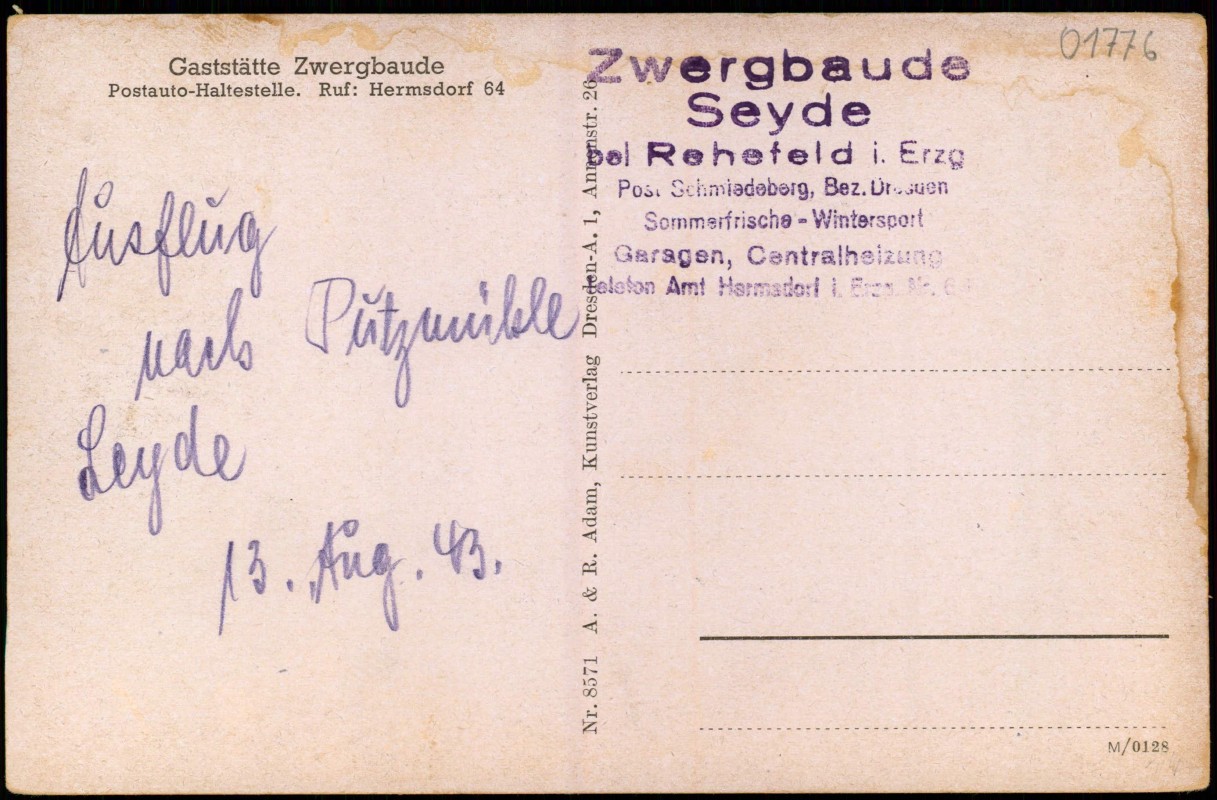 Gaststätte Zwergbaude
Postauto-Haltestelle. Ruf: Hermsdorf 64
Ausflug
nach Putzmühle
Seyde
13. Aug. 43.
Nr. 8571 A. & R. Adam, Kunstverlag Dresden-A. 1, Annenstr. 26
01776
Zwergbaude
Seyde
bei Rehefeld i. Erzg
Post Schmiedeberg, Bez. Dresden
Sommerfrische - Wintersport
Garagen, Centralheizung
Telefon Amt Hermsdorf i. Erzg. Nr. 64
M/0128